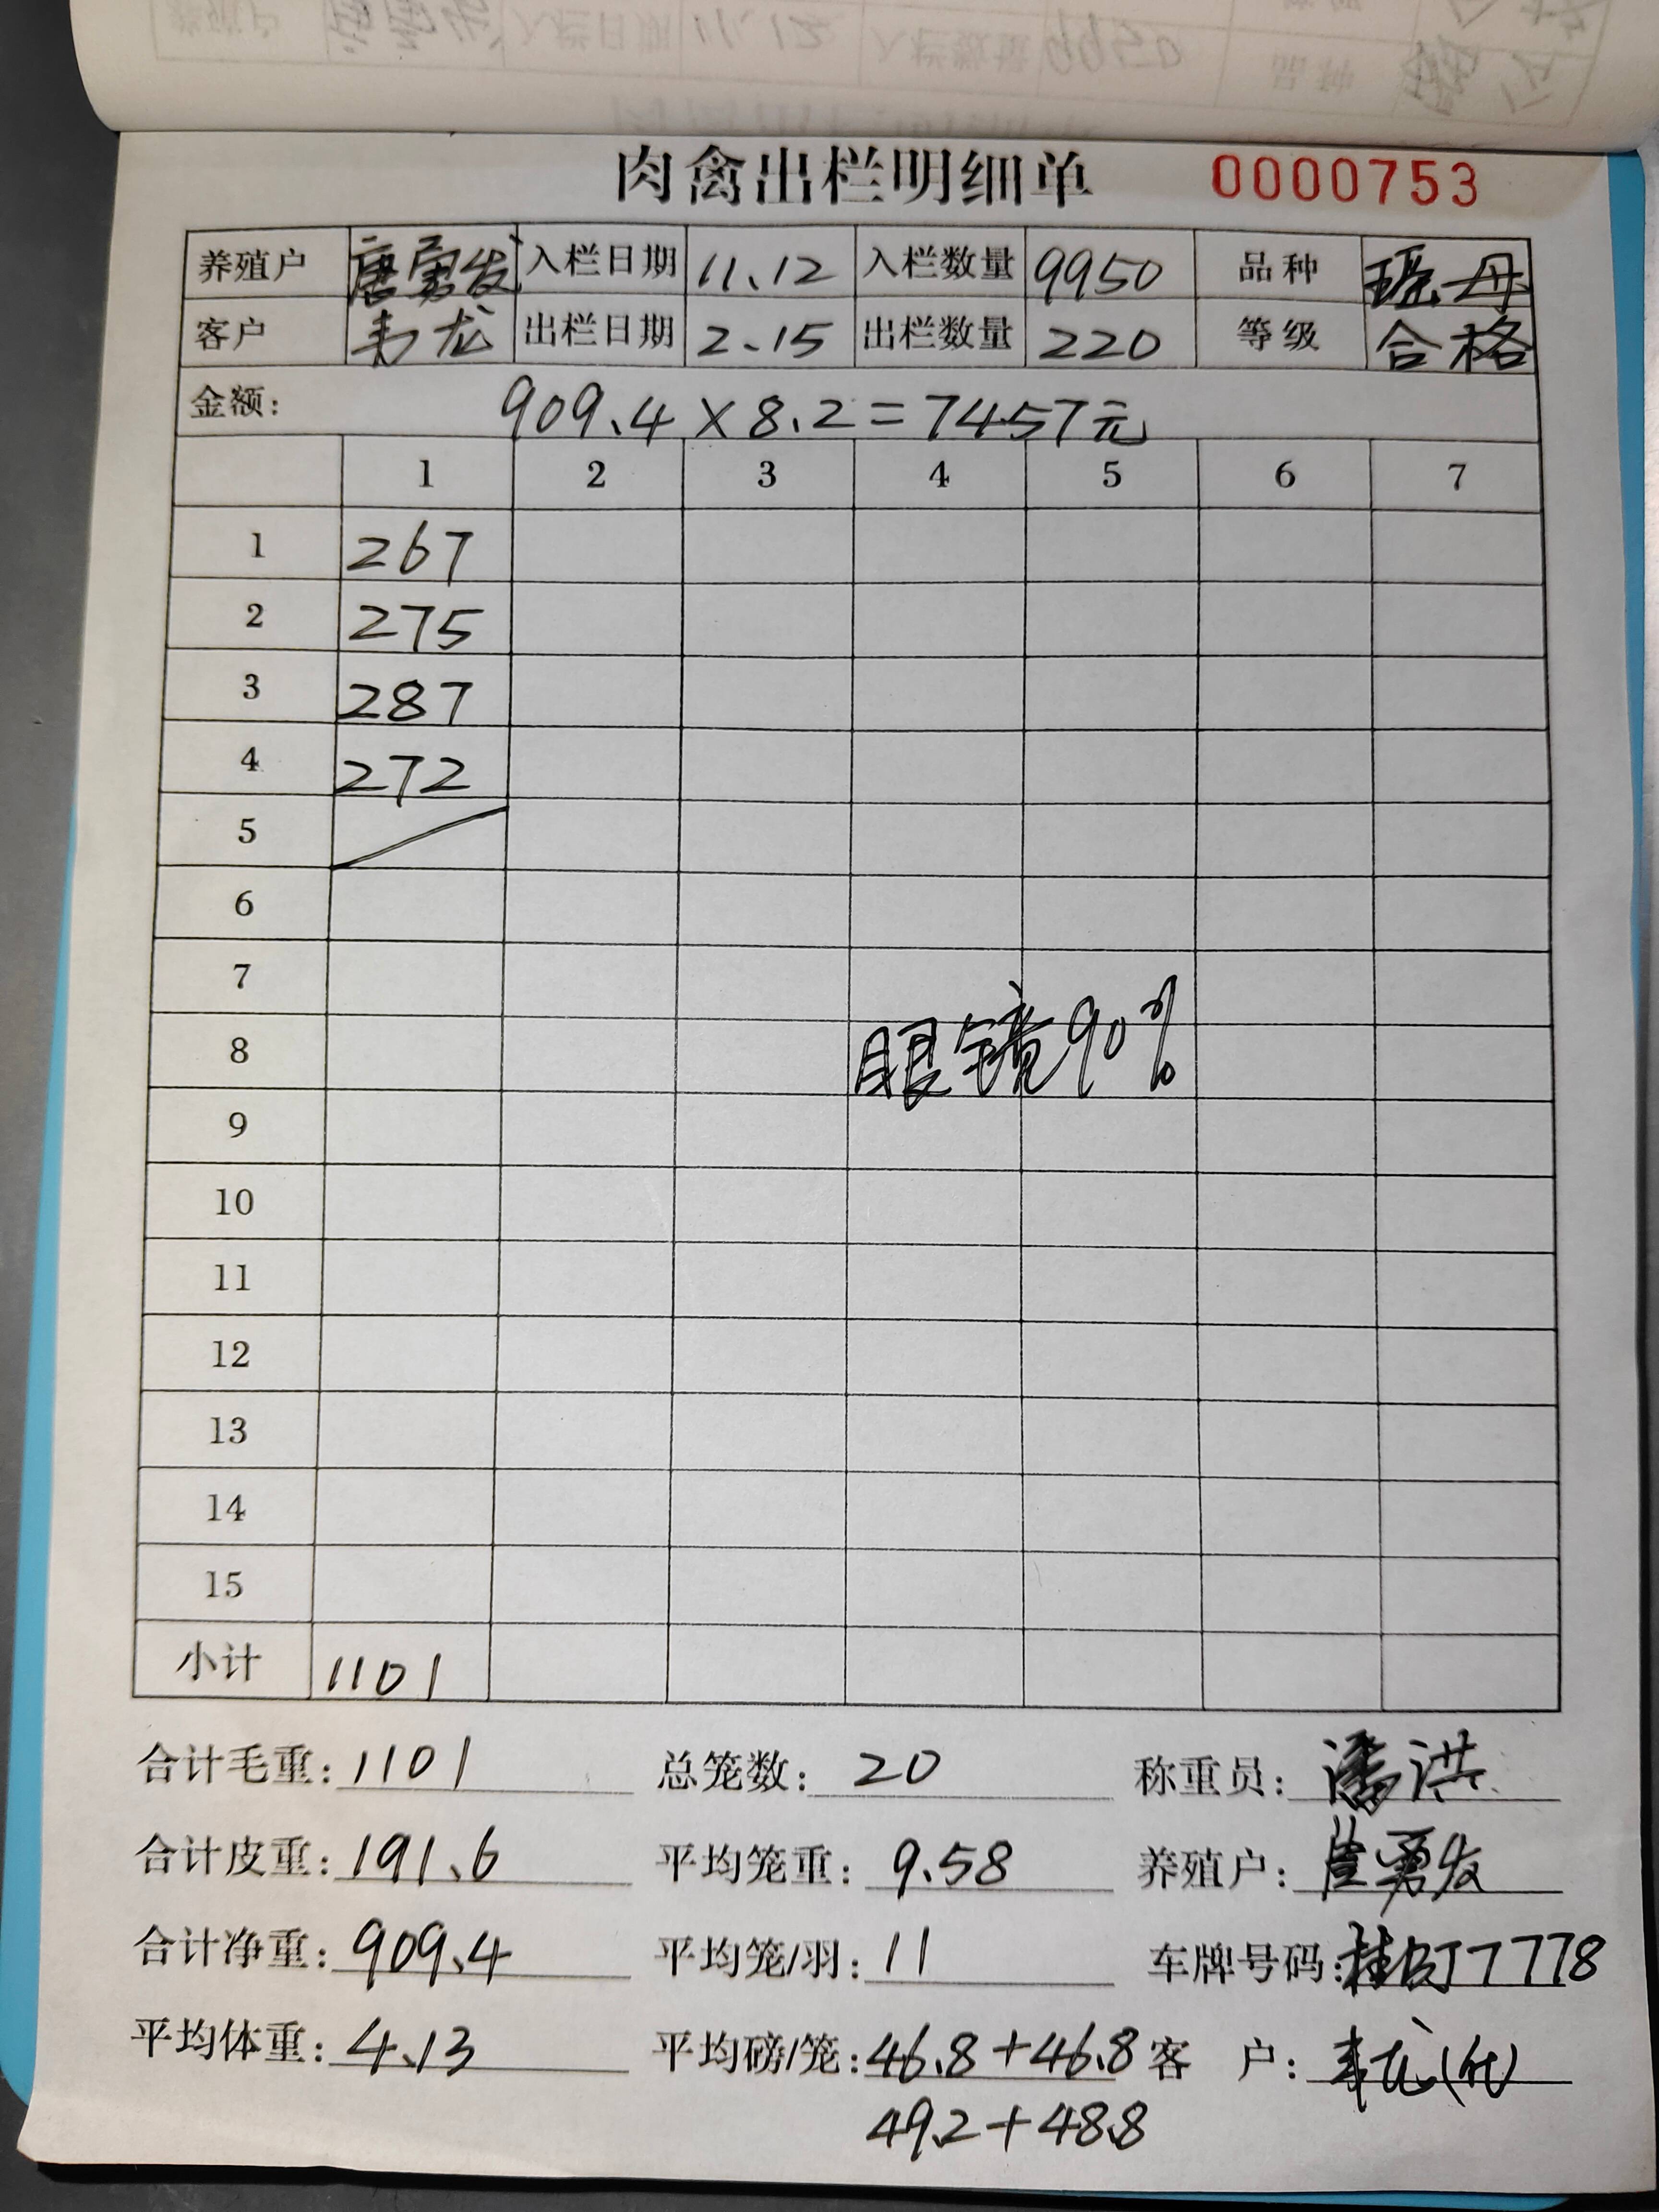 肉禽出栏明细单 0000753
养殖户 唐勇发 入栏日期 11.12 入栏数量 9950 品种 瑶母
客户 韦龙 出栏日期 2.15 出栏数量 220 等级 合格
金额: 909.4×8.2=7457元
1 2 3 4 5 6 7
1 267
2 275
3 287
4 272
5
6
7
8 眼镜90%
9
10
11
12
13
14
15
小计 1101
合计毛重: 1101 总笼数: 20 称重员: 潘洪
合计皮重: 191.6 平均笼重: 9.58 养殖户: 唐勇发
合计净重: 909.4 平均笼/羽: 11 车牌号码: 7778
平均体重: 4.13 平均磅/笼: 46.8+46.8 客 户: 韦龙(代)
49.2+48.8